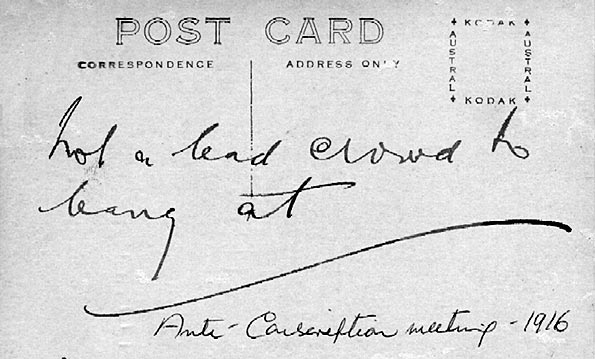 POST CARD
CORRESPONDENCE
ADDRESS ONLY
KODAK
AUSTRAL
AUSTRAL
KODAK
Not a bad crowd to
bang at
Anti-Conscription meeting - 1916